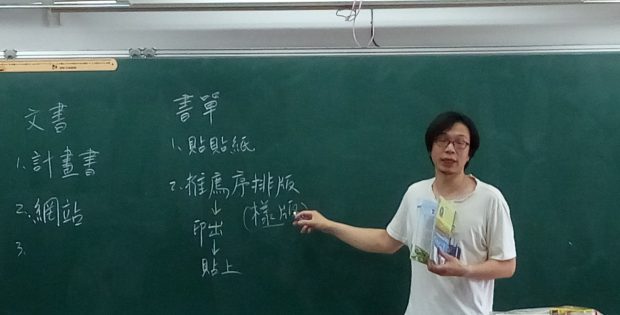 文書
1. 計畫書
2. 網站
3.
書單
1. 貼貼紙
2. 推薦序排版
(樣版)
↓
印出
↓
貼上